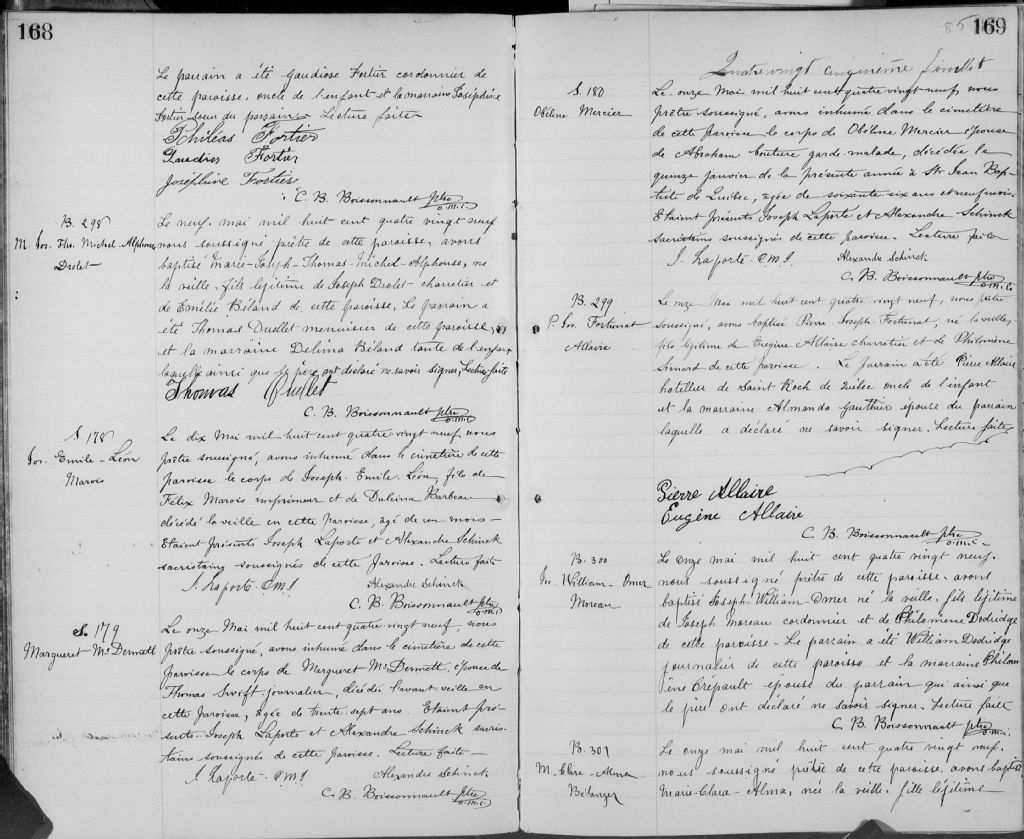 168
Le parrain a été Gaudiose Fortier cordonnier de
cette paroisse, oncle de l'enfant et la marraine Joséphine
Fortier soeur du parrain. Lecture faite
Philéas Fortier
Gaudios Fortier
Joséphine Fortier
C. B. Boissonnault ptre
o.m.i.
B. 298
M. Jos. Tho. Michel Alphonse
Drolet
Le neuf mai mil huit cent quatre vingt neuf
nous soussigné prêtre de cette paroisse, avons
baptisé Marie-Joseph-Thomas-Michel-Alphonse, né
la veille, fils légitime de Joseph Drolet charretier et
de Emilie Béland de cette paroisse. Le parrain a
été Thomas Duellet menuisier de cette paroisse,
et la marraine Delima Béland tante de l'enfant,
laquelle ainsi que le père ont déclaré ne savoir signer, Lecture faite
Thomas Ouellet
C. B. Boissonnault ptre
o.m.i.
S. 178
Jos. Emile-Léon
Marois
Le dix Mai mil huit cent quatre vingt neuf, nous
prêtre soussigné, avons inhumé dans le cimetière de cette
paroisse le corps de Joseph-Emile-Léon, fils de
Félix Marois imprimeur et de Dulcina Barbeau
décédé la veille en cette paroisse, agé de un mois-
Etaient présents Joseph Laporte et Alexandre Schinck
sacristains soussignés de cette paroisse. Lecture faite
J. Laporte O.M.I. Alexandre Schinck
C. B. Boissonnault ptre
o.m.i.
S. 179
Margueret McDermett
Le onze Mai mil huit cent quatre vingt neuf, nous
prêtre soussigné, avons inhumé dans le cimetière de cette
paroisse le corps de Margueret McDermett, épouse de
Thomas Swift journalier, décédée l'avant veille en
cette paroisse, agée de trente sept ans. Etaient pré-
sents Joseph Laporte et Alexandre Schinck sacris-
tains soussignés de cette paroisse. Lecture faite-
J. Laporte O.M.I. Alexandre Schinck
C. B. Boissonnault ptre
o.m.i.
85 169
Quatrevingt cinquième feuillet
S. 180
Obéline Mercier
Le onze Mai mil huit cent quatre vingt neuf, nous
prêtre soussigné, avons inhumé dans le cimetière
de cette paroisse le corps de Obéline Mercier épouse
de Abraham Couture garde-malade, décédée le
quinze janvier de la présente année à St Jean Bap-
tiste de Québec, agée de soixante six ans et neuf mois.
Etaient présents Joseph Laporte et Alexandre Schinck
sacristains soussignés de cette paroisse. Lecture faite
J. Laporte O.M.I. Alexandre Schinck
C. B. Boissonnault ptre
o.m.i.
B. 299
P. Jos. Fortunat
Allaire
Le onze Mai mil huit cent quatre vingt neuf, nous prêtre
soussigné, avons baptisé Pierre-Joseph-Fortunat, né la veille,
fils légitime de Eugène Allaire charretier et de Philomène
Simard de cette paroisse. Le parrain a été Pierre Allaire
hotellier de Saint Roch de Québec oncle de l'enfant
et la marraine Almanda Gauthier épouse du parrain
laquelle a déclaré ne savoir signer. Lecture faite
Pierre Allaire
Eugène Allaire
C. B. Boissonnault ptre
o.m.i.
B. 300
Jos. William-Omer
Moreau
Le onze mai mil huit cent quatre vingt neuf.
nous soussigné prêtre de cette paroisse. avons
baptisé Joseph-William-Omer né la veille. fils légitime
de Joseph Moreau cordonnier et de Philomène Dodridge
de cette paroisse- Le parrain a été William Dodridge
journalier de cette paroisse et la marraine Philom
ène Crépault épouse du parrain qui ainsi que
le père ont déclaré ne savoir signer. Lecture faite
C. B. Boissonnault ptre
o.m.i.
B. 301
M. Clara-Alma
Bélanger
Le onze mai mil huit cent quatre vingt neuf.
nous soussigné prêtre de cette paroisse. avons baptisé
Marie-Clara-Alma, née la veille. fille légitime